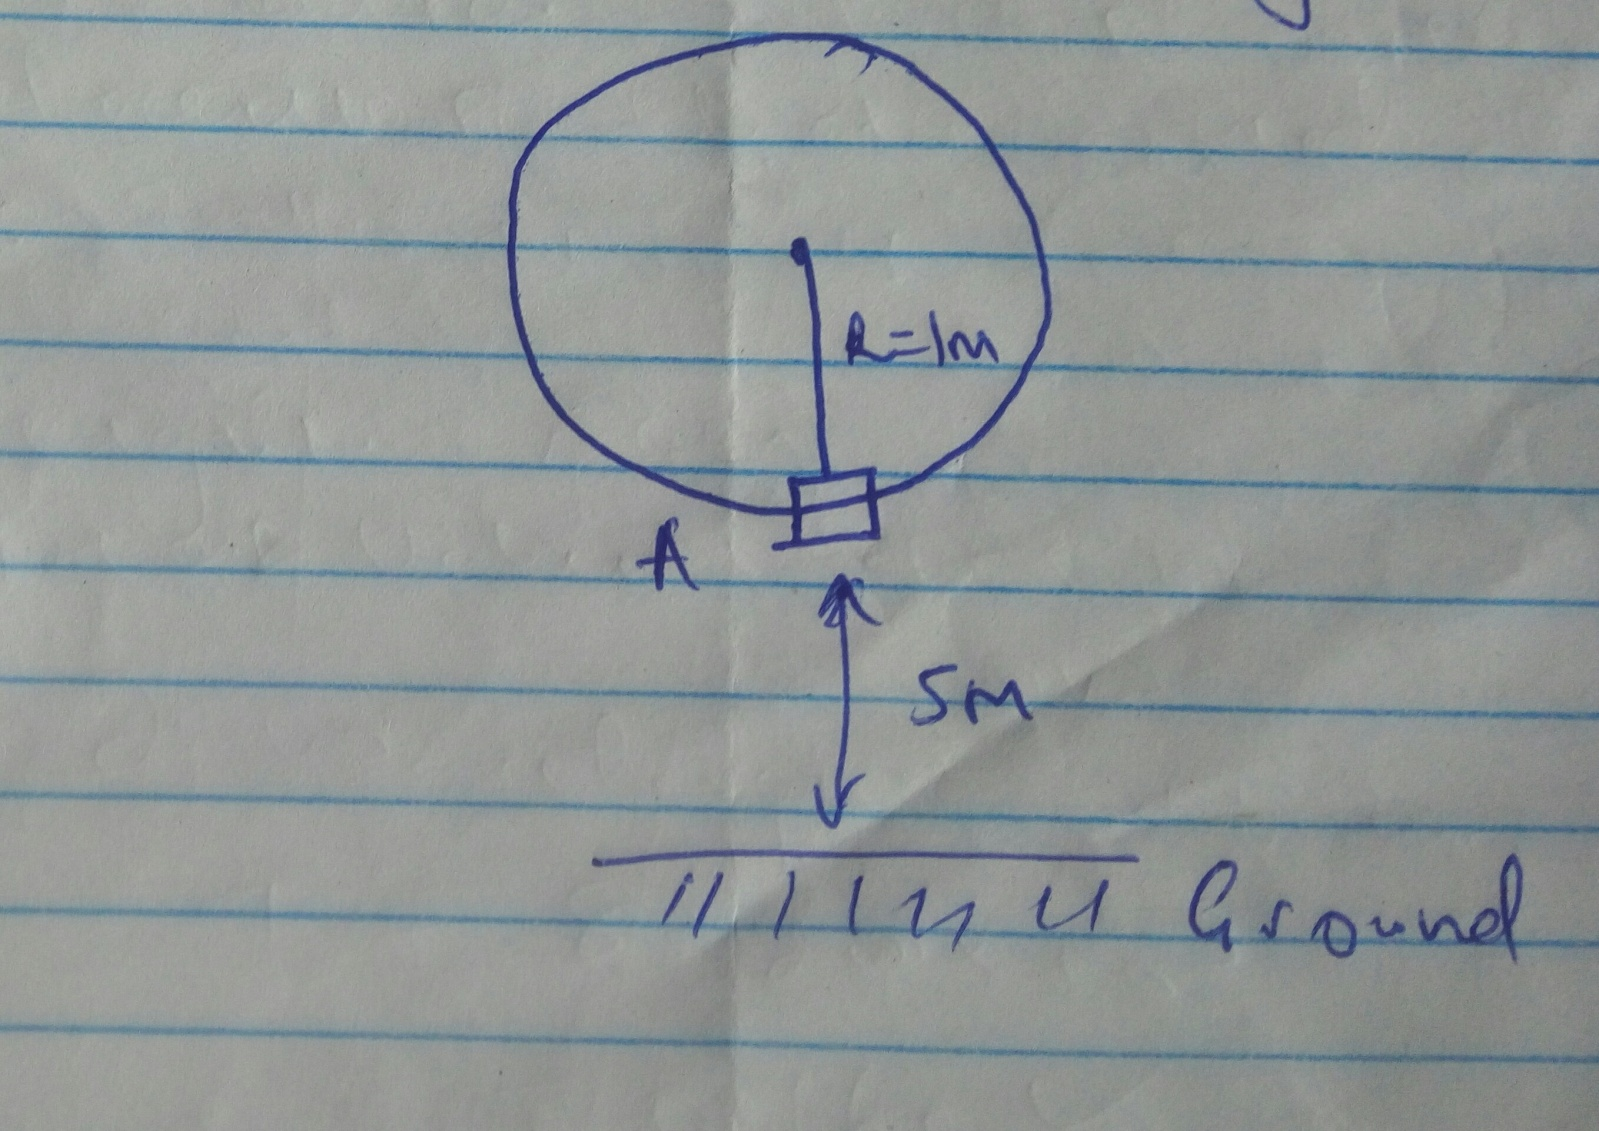 R=1m
A
5m
Ground